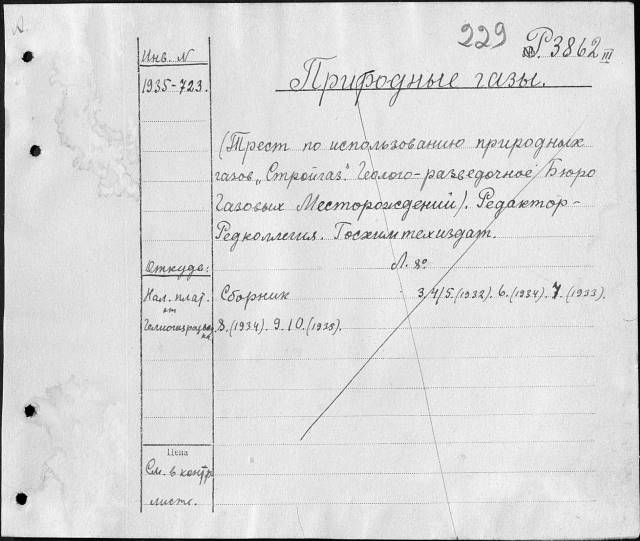 229 Р3862 III
Инв. N
1935-723.
Природные газы.
(Трест по использованию природных
газов „Стройгаз". Геолого-разведочное Бюро
Газовых Месторождений). Редактор-
Редколлегия. Госхимтехиздат.
Откуда:
Л. 8º
Нал. плат.
от
Сборник 3/4/5. (1932). 6. (1934). 7. (1933).
8. (1934). 9. 10. (1935).
Цена
См. в контр.
листе.